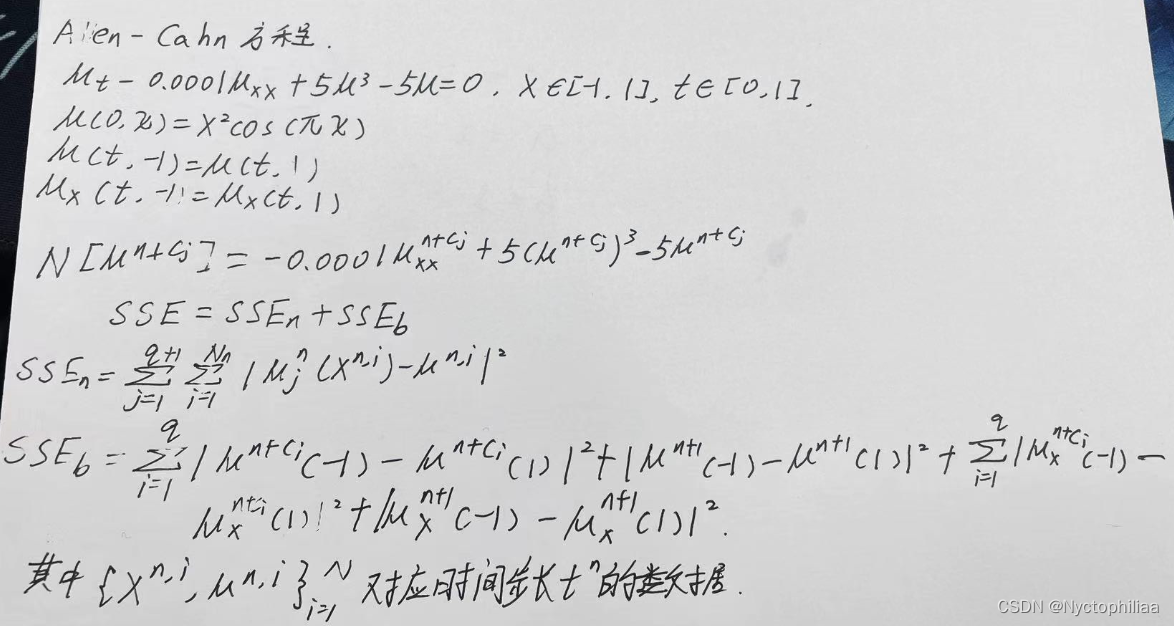 Allen-Cahn 方程.
μt - 0.0001μxx + 5μ³ - 5μ = 0, x∈[-1, 1], t∈[0, 1],
μ(0, x) = x²cos(πx)
μ(t, -1) = μ(t, 1)
μx(t, -1) = μx(t, 1)
N[μ^{n+cj}] = -0.0001μ_{xx}^{n+cj} + 5(μ^{n+cj})³ - 5μ^{n+cj}
SSE = SSEn + SSEb
SSEn = ∑_{j=1}^{q+1} ∑_{i=1}^{Nn} |μ_j^n(x^{n,i}) - μ^{n,i}|²
SSEb = ∑_{i=1}^{q} |μ^{n+ci}(-1) - μ^{n+ci}(1)|² + |μ^{n+1}(-1) - μ^{n+1}(1)|² + ∑_{i=1}^{q} |μ_x^{n+ci}(-1) -
μ_x^{n+ci}(1)|² + |μ_x^{n+1}(-1) - μ_x^{n+1}(1)|².
其中 {x^{n,i}, μ^{n,i}}_{i=1}^{N} 对应时间步长 t^n 的数据.
CSDN @Nyctophiliaa